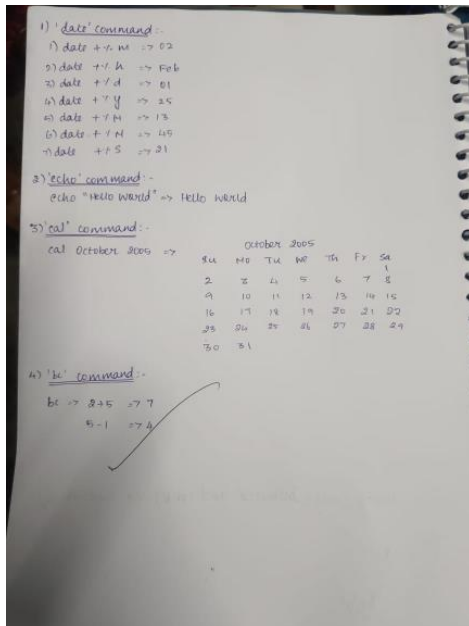 1) 'date' command :-
1) date +% m => 02
2) date +% h => Feb
3) date +% d => 01
4) date +% y => 25
5) date +% H => 13
6) date +% M => 45
7) date +% S => 21
2) 'echo' command :-
echo "Hello World" => Hello World
3) 'cal' command :-
cal October 2005 =>
October 2005
Su Mo Tu We Th Fr Sa
1
2 3 4 5 6 7 8
9 10 11 12 13 14 15
16 17 18 19 20 21 22
23 24 25 26 27 28 29
30 31
4) 'bc' command :-
bc => 2+5 => 7
5-1 => 4